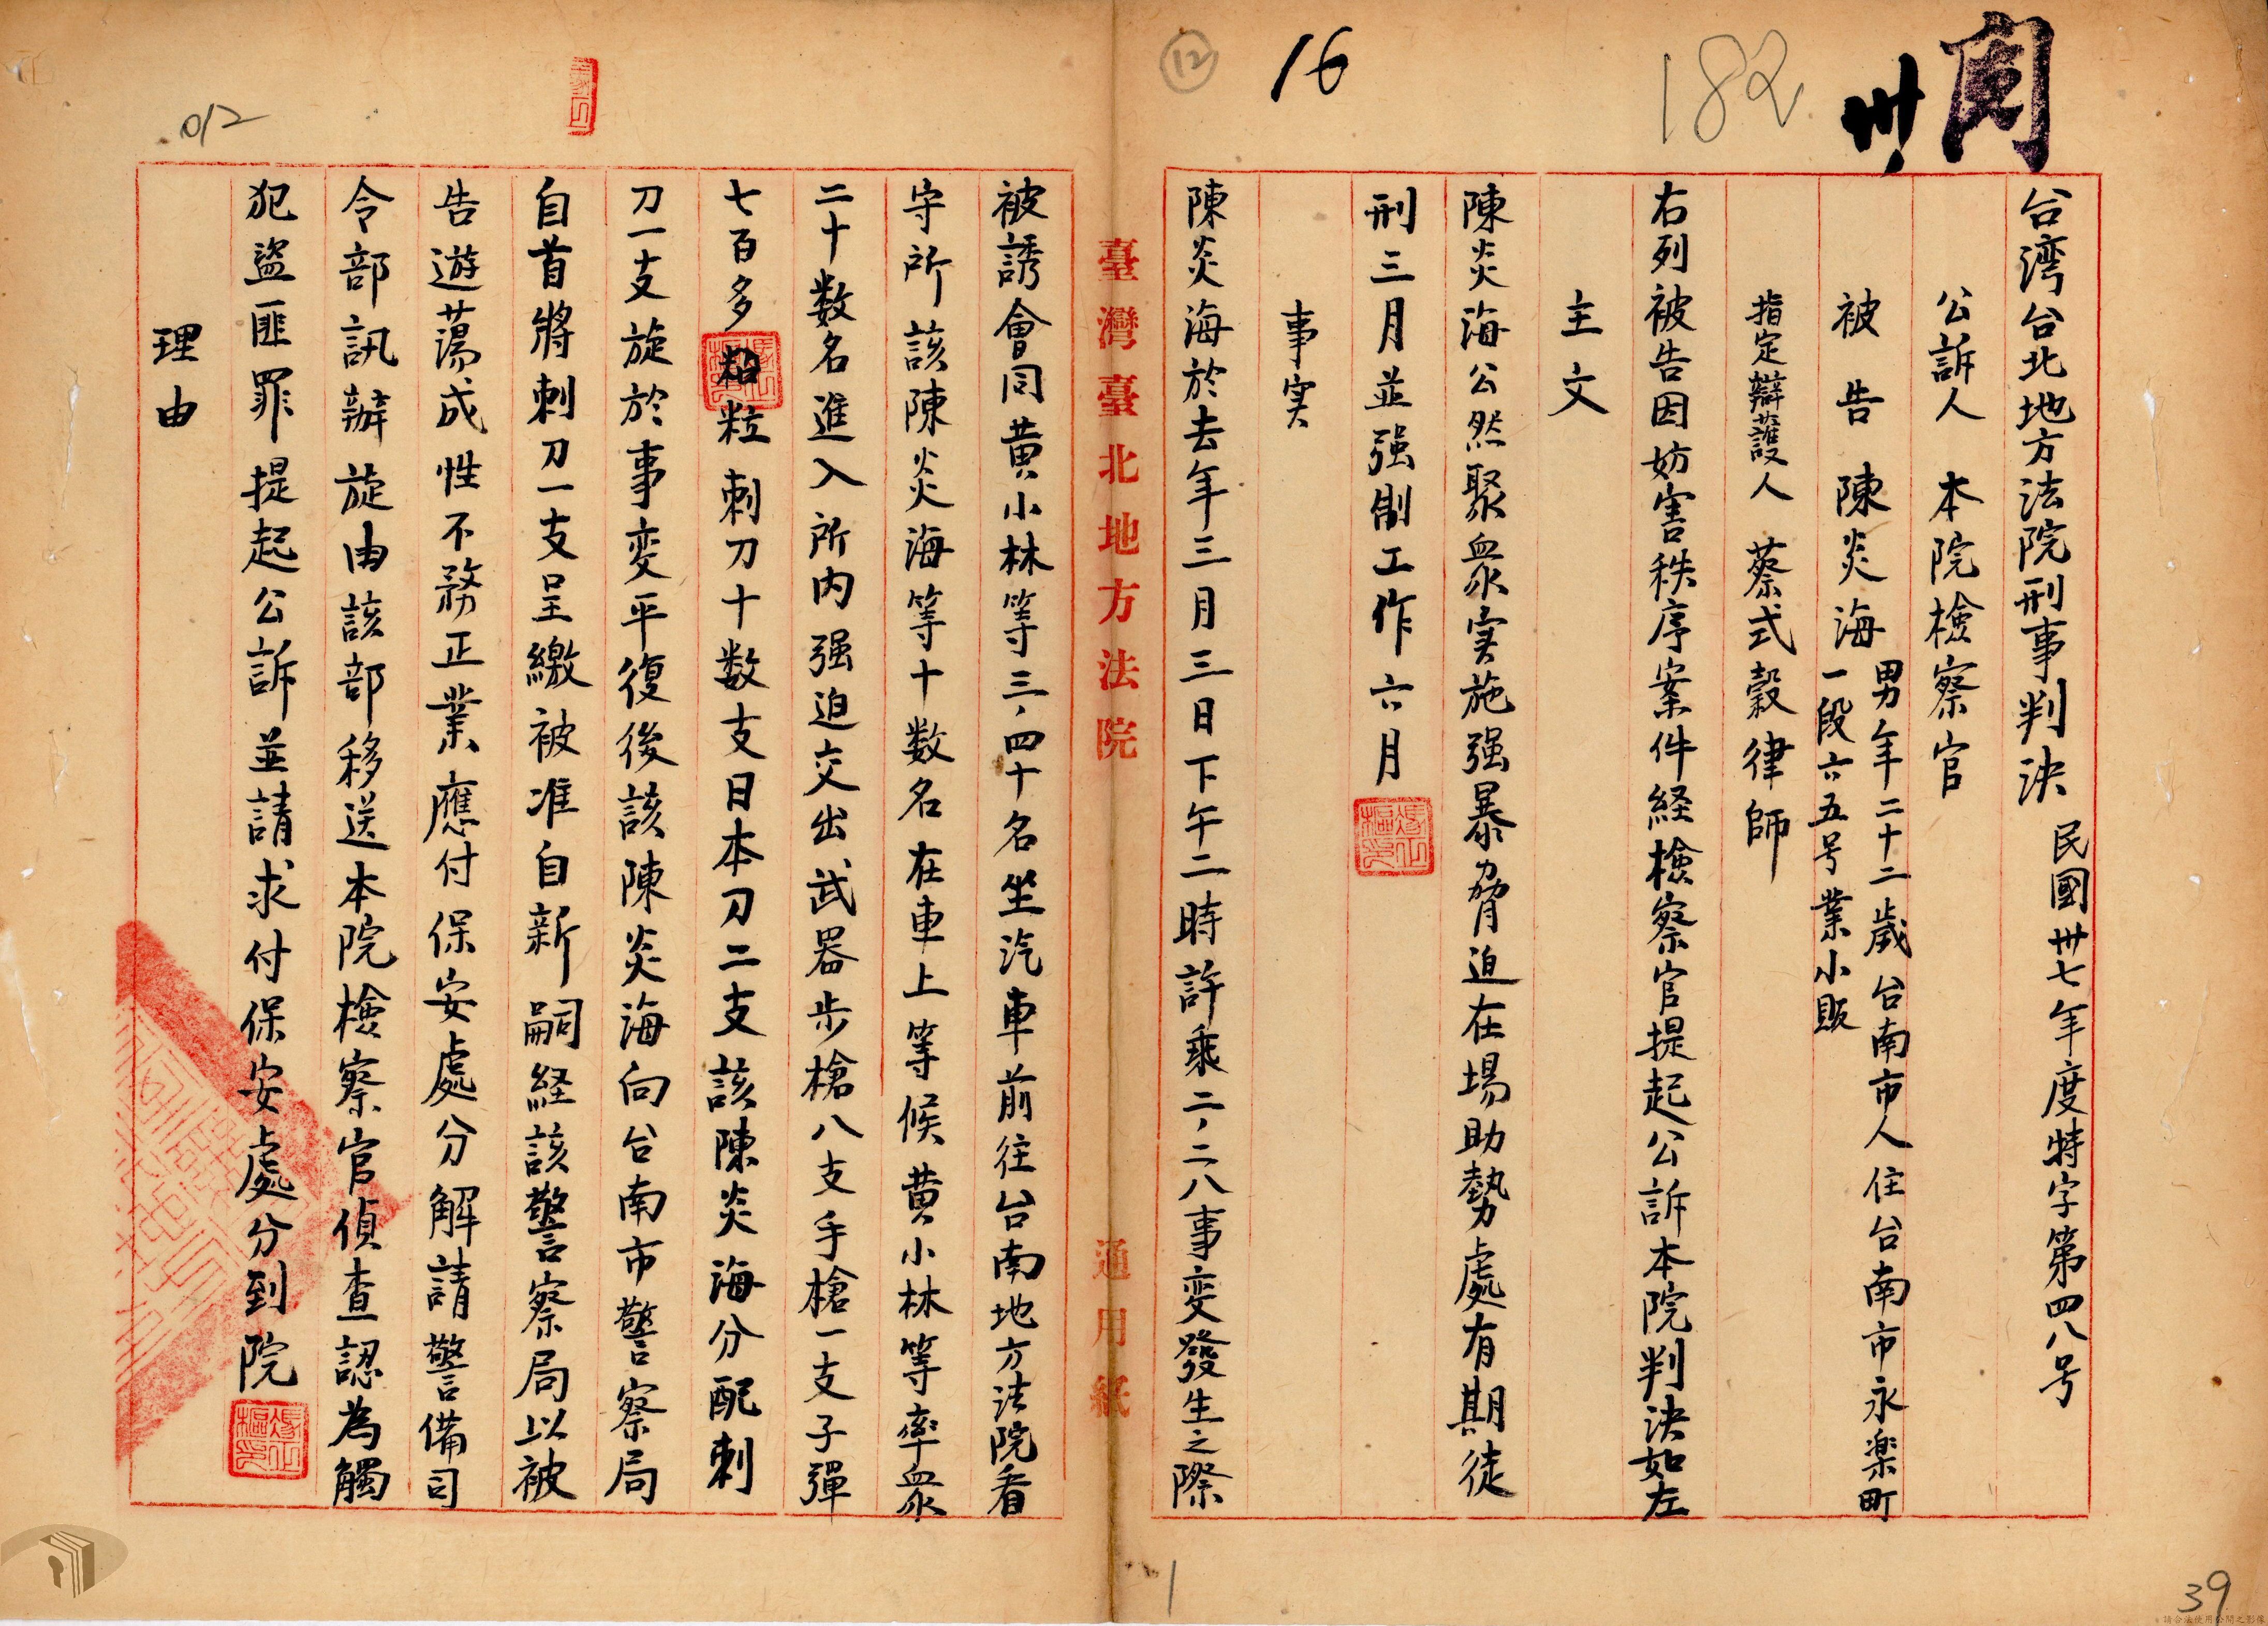 閱
卅
182
16
12
台湾台北地方法院刑事判決 民國卅七年度特字第四八号
公訴人 本院檢察官
被告 陳炎海 男年二十二歲台南市人住台南市永楽町
一段六五号業小販
指定辯護人 蔡式穀律師
右列被告因妨害秩序案件経檢察官提起公訴本院判決如左
主文
陳炎海公然聚衆実施强暴脅迫在場助勢處有期徒
刑三月並强制工作六月
事実
陳炎海於去年三月三日下午二時許乘二、二八事変發生之際
臺灣臺北地方法院 通用紙
被誘會同黄小林等三、四十名坐汽車前往台南地方法院看
守所該陳炎海等十数名在車上等候黄小林等率衆
二十数名進入所内强迫交出武器步槍八支手槍一支子彈
七百多粒刺刀十数支日本刀二支該陳炎海分配刺
刀一支旋於事変平復後該陳炎海向台南市警察局
自首將刺刀一支呈繳被准自新嗣経該警察局以被
告遊蕩成性不務正業應付保安處分解請警備司
令部訊辦旋由該部移送本院檢察官偵查認為觸
犯盜匪罪提起公訴並請求付保安處分到院
理由
012
1
39
請合法使用公開之影像